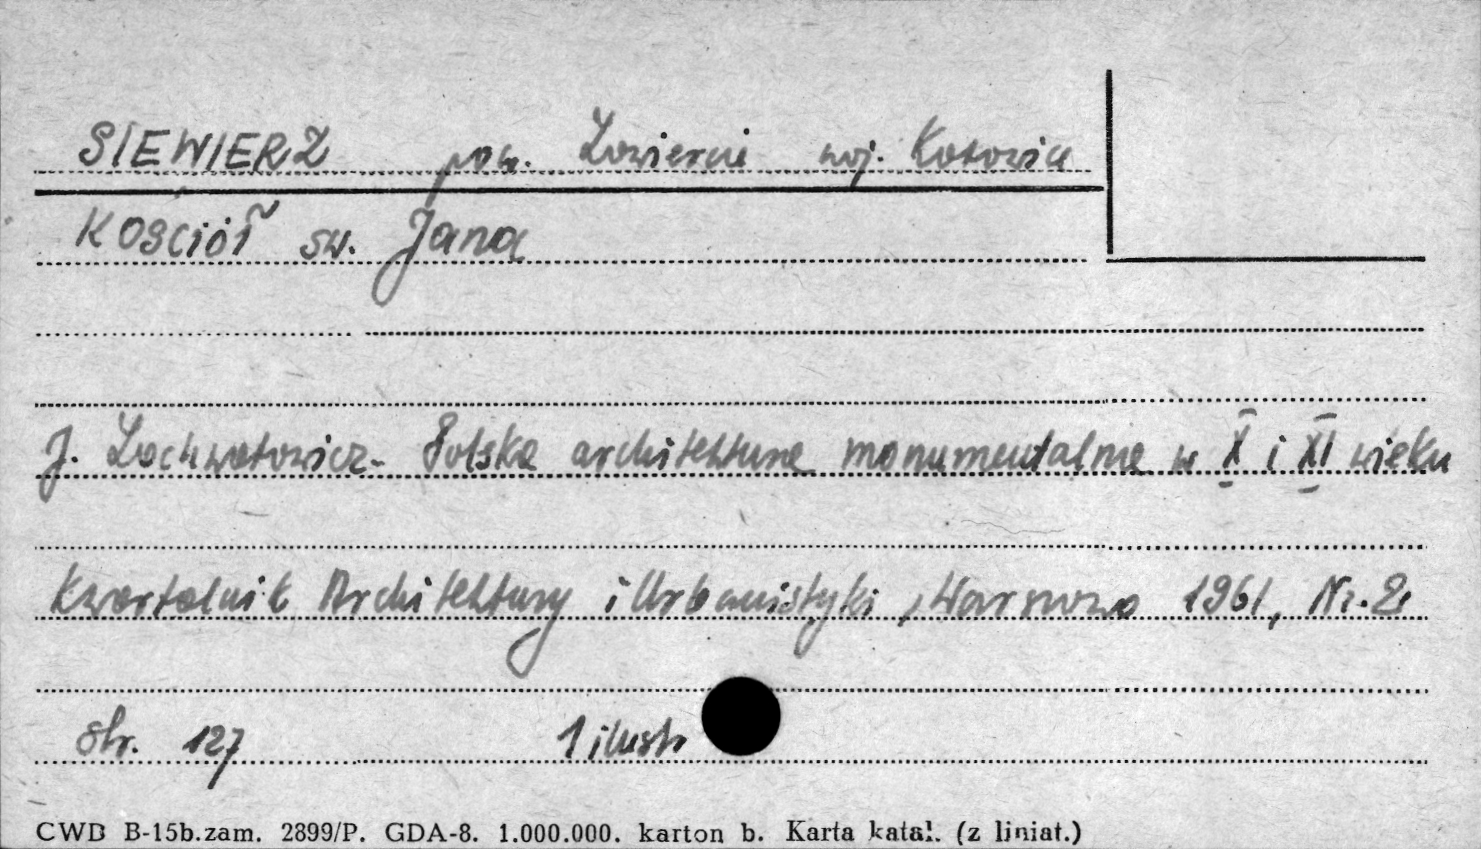 SIEWIERZ pow. Zawiercie woj. Katowice
Kościół św. Jana
J. Zachwatowicz - Polska architektura monumentalna w X i XI wieku
Kwartalnik Architektury i Urbanistyki, Warszawa 1961, Nr. 2
str. 127 1 ilustr
CWD B-15b.zam. 2899/P. GDA-8. 1.000.000. karton b. Karta katal. (z liniat.)